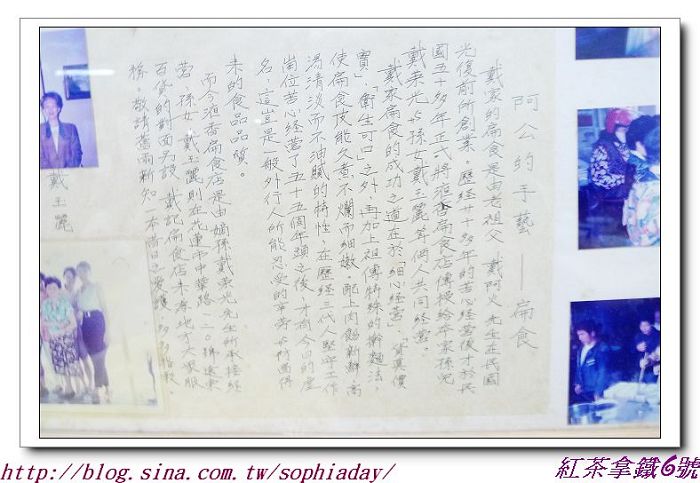 阿公的手藝——扁食
戴家的扁食是由老祖父 戴阿火 先生在民國
光復前所創業。歷經廿十多年的苦心經營後才於民
國五十多年正式將液香扁食店傳授給本家孫兒
戴東光與孫女戴玉麗等倆人共同經營。
戴家扁食的成功之道在於「細心經營」、「貨真價
實」、「衛生可口」之外，再加上祖傳特殊的幹麵法，
使扁食皮能久煮不爛而細嫩，配上肉餡新鮮，高
湯清淡而不油膩的特性，在歷經三代人堅守工作
崗位苦心經營了五十五個年頭之後，才有今日的
名，這豈是一般外行人所能忍受的辛勞與
來的食品品質。
而今液香扁食店是由嫡孫戴東光先生所承接經
營，孫女 戴玉麗則在花蓮市中華路一二〇號遠東
百貨的對面另設 戴記扁食店 未來地方大眾服
務。敬請舊雨新知一本舊日之愛護，多多指教。
戴玉麗
http://blog.sina.com.tw/sophiaday/
紅茶拿鐵6號